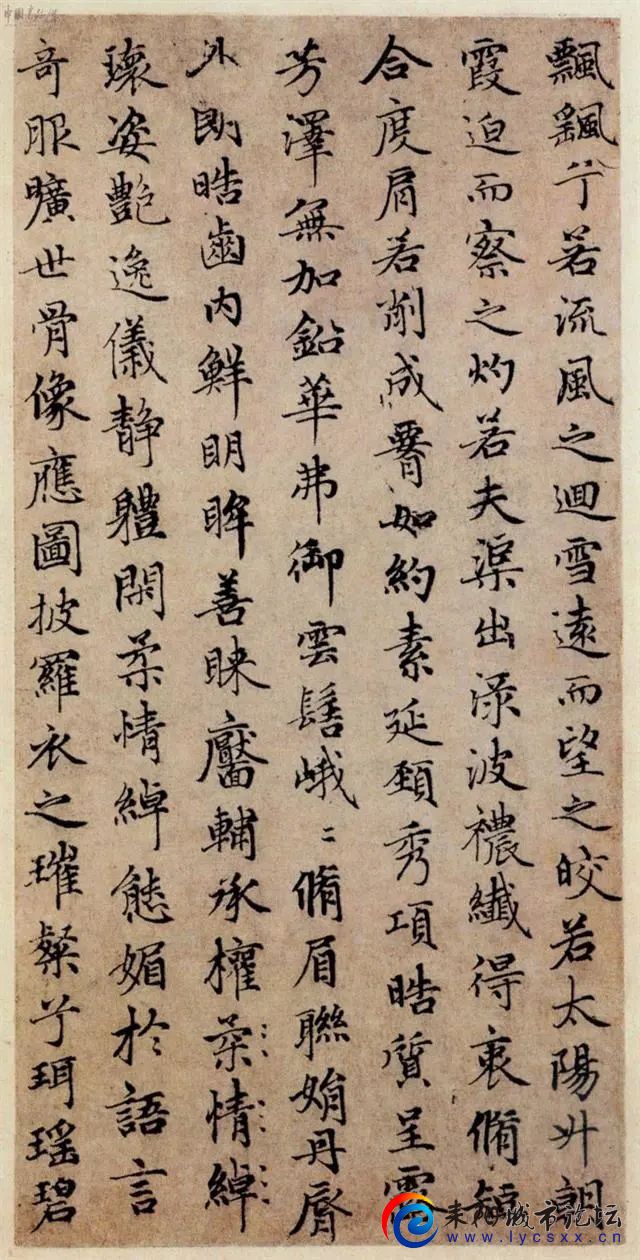 飄颻兮若流風之迴雪遠而望之皎若太陽升朝
霞迫而察之灼若夫渠出渌波襛纖得衷脩短
合度肩若削成腰如約素延頸秀項皓質呈露
芳澤無加鉛華弗御雲髻峨〻脩眉聯娟丹脣
外朗皓齒内鮮明眸善睐靨輔承權柔情綽
瓌姿艷逸儀静體閑柔情綽態媚於語言
奇服曠世骨像應圖披羅衣之璀粲兮珥瑶碧
耒阳城市论坛
www.lycsxx.cn